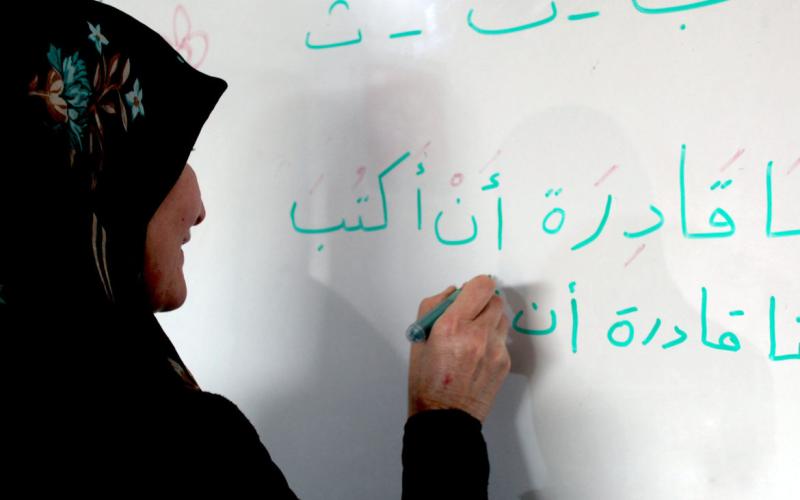 ت - ث
قَادِرَة أَنْ أَكتُبَ
قادرة أن